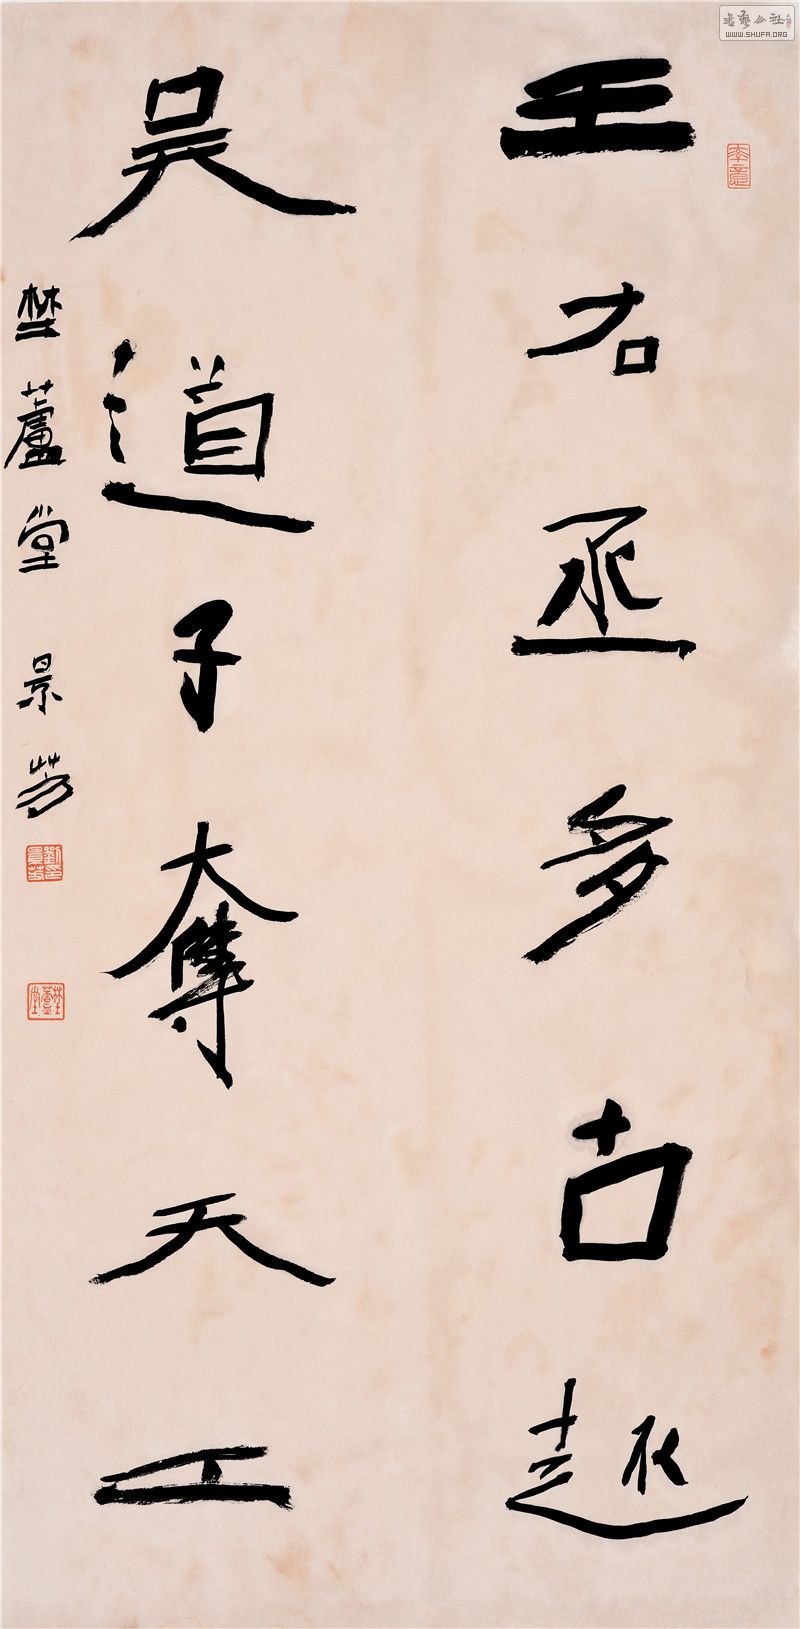 王右丞多古趣
吴道子奪天工
埜蘆堂 景芳
書藝公社
WWW.SHUFA.ORG